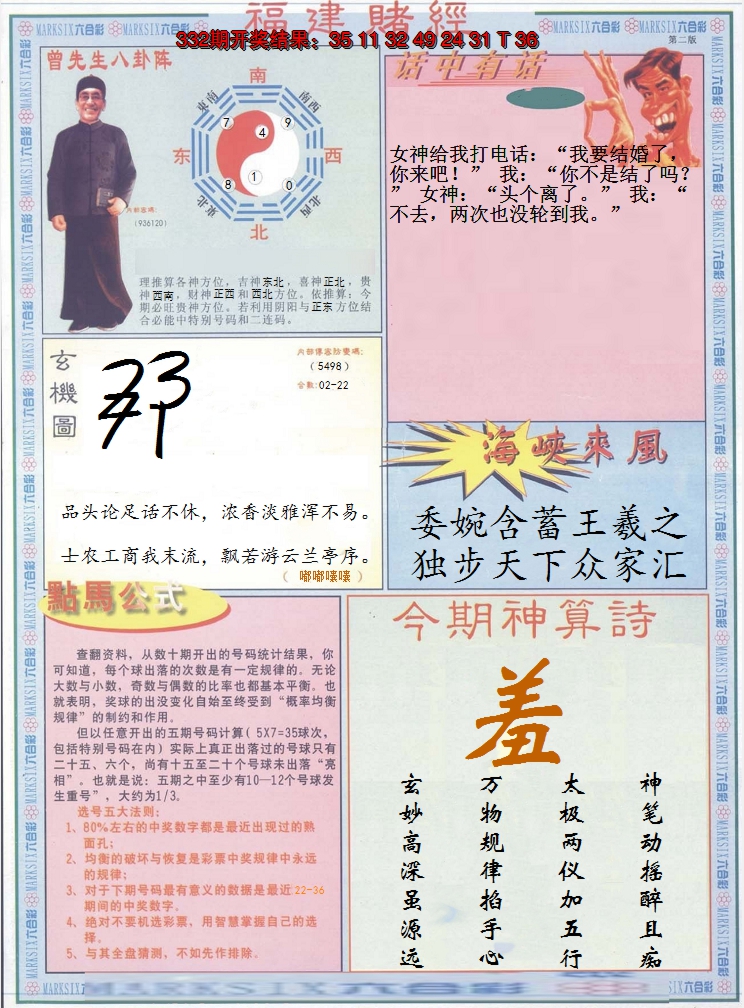 福建賭經
332期开奖结果：35 11 32 49 24 31 T 36
第二版
MARKSIX六合彩
曾先生八卦阵
南
东南
南西
7
9
4
东
西
8
1
0
东北
北西
北
内部密碼:
（936120）
理推算各神方位，吉神东北，喜神正北，贵
神西南，财神正西和西北方位。依推算：今
期必旺贵神方位。若利用阴阳与正东方位结
合必能中特别号码和二连码。
话中有话
女神给我打电话：“我要结婚了，
你来吧！” 我：“你不是结了吗？
” 女神：“头个离了。” 我：“
不去，两次也没轮到我。”
玄機圖
内部傳密防密碼:
（5498）
合数:02-22
品头论足话不休，浓香淡雅浑不易。
士农工商我末流，飘若游云兰亭序。
（ 嘟嘟嚷嚷 ）
海峽來風
委婉含蓄王羲之
独步天下众家汇
點馬公式
查翻资料，从数十期开出的号码统计结果，你
可知道，每个球出落的次数是有一定规律的。无论
大数与小数，奇数与偶数的比率也都基本平衡。也
就表明，奖球的出没变化自始至终受到“概率均衡
规律”的制约和作用。
但以任意开出的五期号码计算（ 5X7=35球次，
包括特别号码在内）实际上真正出落过的号球只有
二十五、六个，尚有十五至二十个号球未出落“亮
相”。也就是说：五期之中至少有10—12个号球发
生重号”，大约为1/3。
选号五大法则:
1、80%左右的中奖数字都是最近出现过的熟
面孔；
2、均衡的破坏与恢复是彩票中奖规律中永远
的规律；
3、对于下期号码最有意义的数据是最近22-36
期间的中奖数字。
4、绝对不要机选彩票，用智慧掌握自己的选
择。
5、与其全盘猜测，不如先作排除。
今期神算詩
羞
神笔动摇醉且痴
太极两仪加五行
万物规律掐手心
玄妙高深虽源远